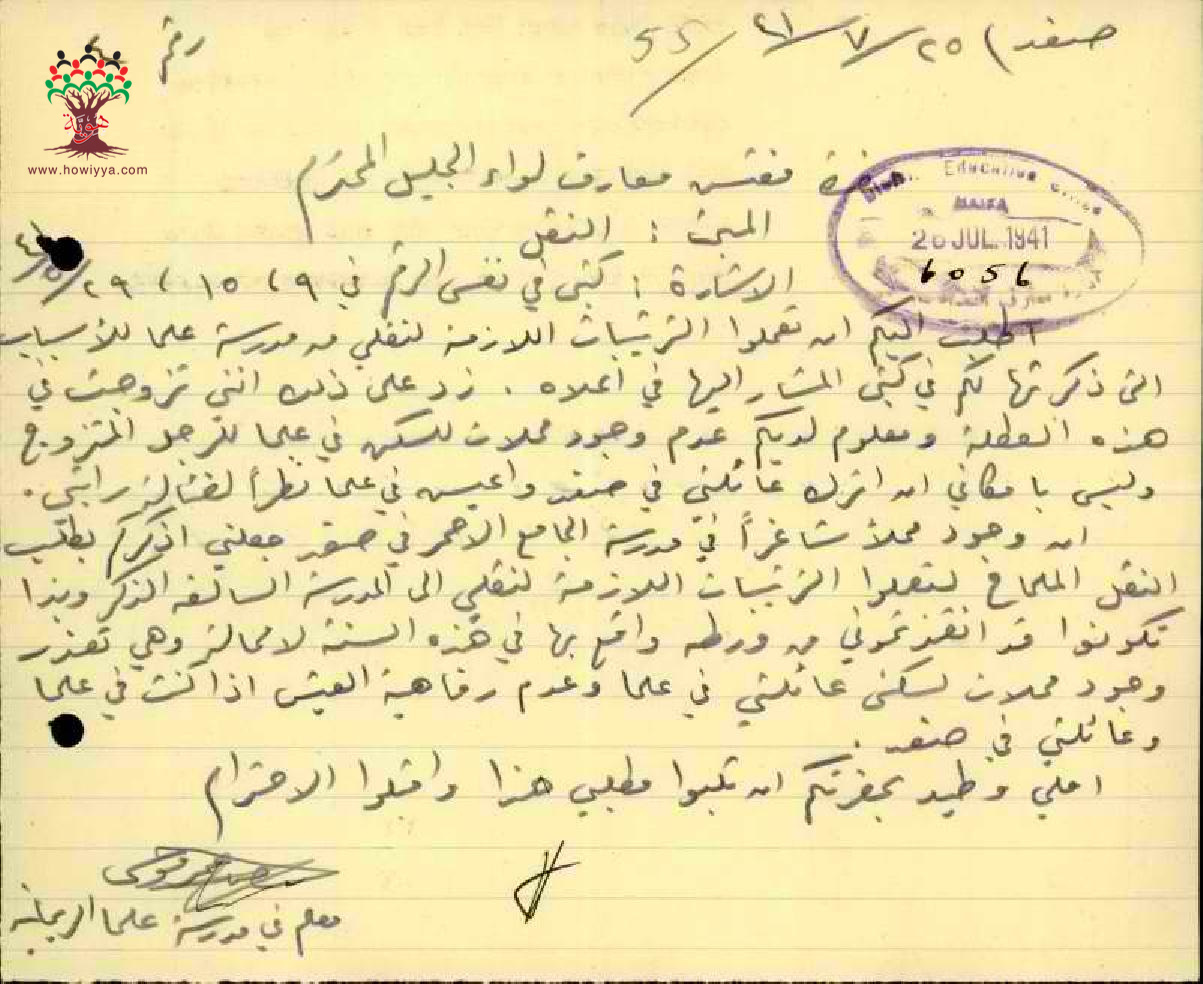 صفد) ٢٥/٧/٤١
55/
رقم
هوية
www.howiyya.com
حضرة مفتش معارف لواء الجليل المحترم
المبحث : النقل
الاشارة : كتبي في نفس الرقم في ٩، ١٥، ٢٩/٥/٤١
District Education Office
HAIFA
26 JUL 1941
6056
اطلب اليكم ان تعملوا الترتيبات اللازمة لنقلي من مدرسة علما للأسباب
التي ذكرتها لكم في كتبي المشار اليها في اعلاه . زد على ذلك انني تزوجت في
هذه العطلة ومعلوم لديكم عدم وجود محلات للسكن في علما للرجل المتزوج
وليس بامكاني ان اترك عائلتي في صفد واعيش في علما نظراً لضئالة راتبي .
ان وجود محلاً شاغراً في مدرسة الجامع الاحمر في صفد جعلني اذكركم بطلب
النقل الملحاح لتعملوا الترتيبات اللازمة لنقلي الى المدرسة السالفة الذكر وبذا
تكونوا قد انقذتموني من ورطه واقع بها في هذه السنة لا محالة وهي تعذر
وجود محلات لسكنى عائلتي في علما وعدم رفاهية العيش اذا كنت في علما
وعائلتي في صفد .
املي وطيد بحضرتكم ان تلبوا مطلبي هذا واقبلوا الاحترام
معلم في مدرسة علما الريحانية